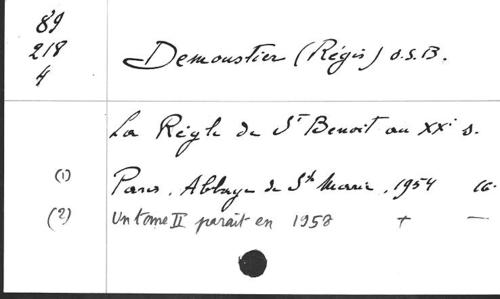 89
218
4
Demoustier (Régis) O.S.B.
La Règle de St Benoit au XXe s.
(1) Paris, Abbaye de Ste Marie, 1954 16.
(2) Un tome II paraît en 1958 + —